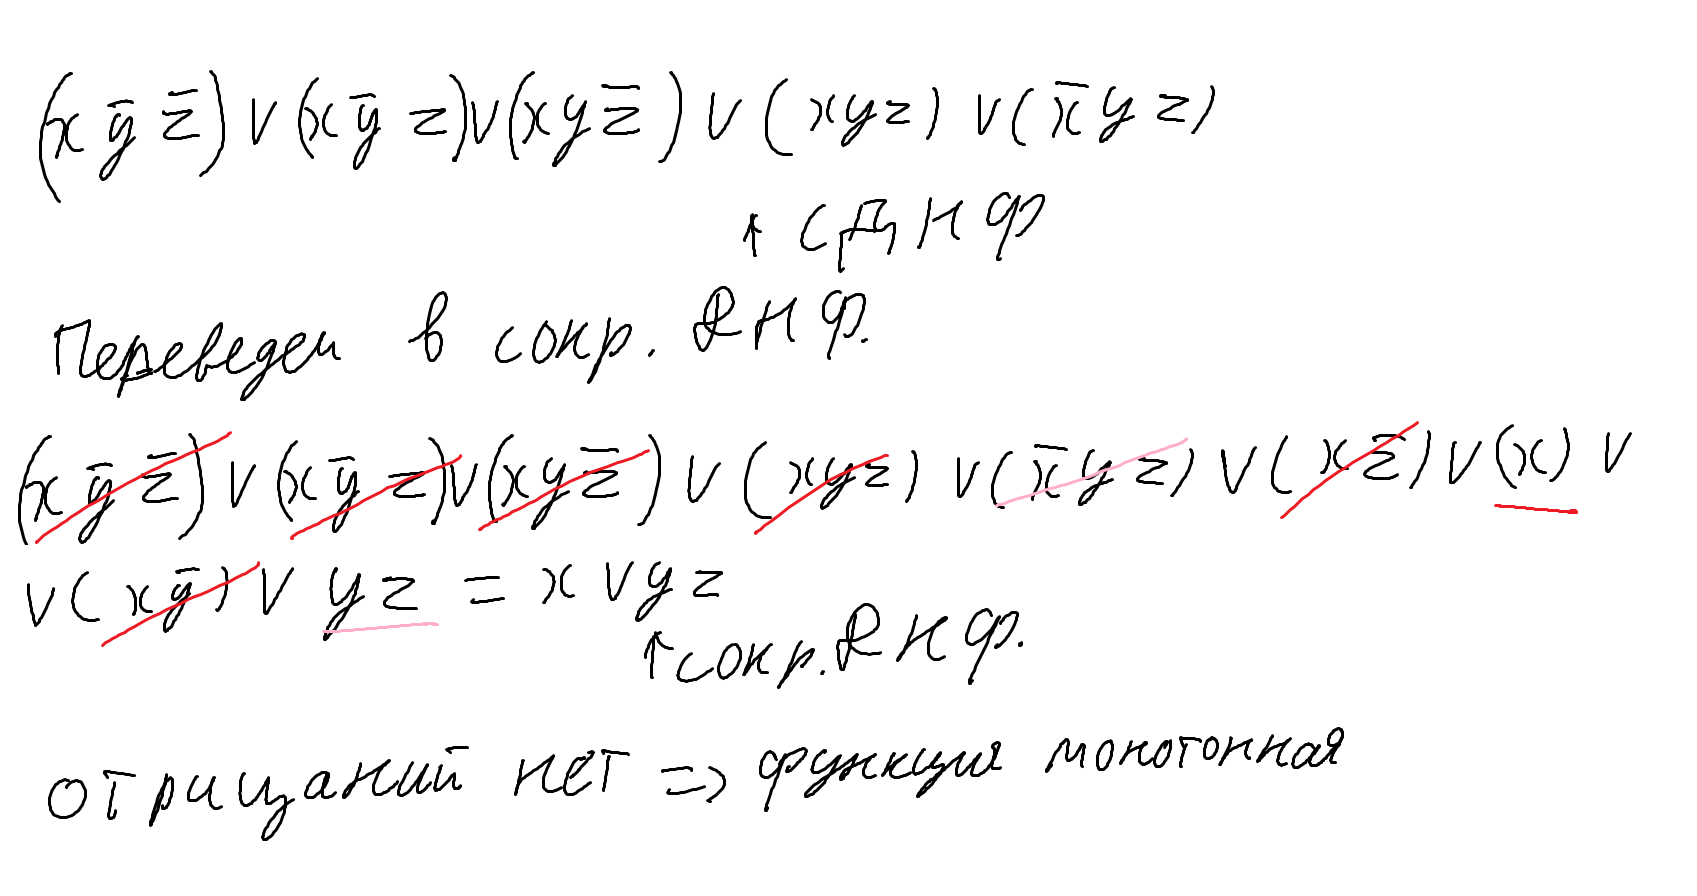 (x ȳ z̄) ∨ (x ȳ z) ∨ (x y z̄) ∨ (x y z) ∨ (x̄ y z)
↑ СДНФ
Переведем в сокр. ДНФ.
(x ȳ z̄) ∨ (x ȳ z) ∨ (x y z̄) ∨ (x y z) ∨ (x̄ y z) ∨ (x z̄) ∨ (x) ∨
∨ (x ȳ) ∨ y z = x ∨ y z
↑ сокр. ДНФ.
отрицаний нет => функция монотонная